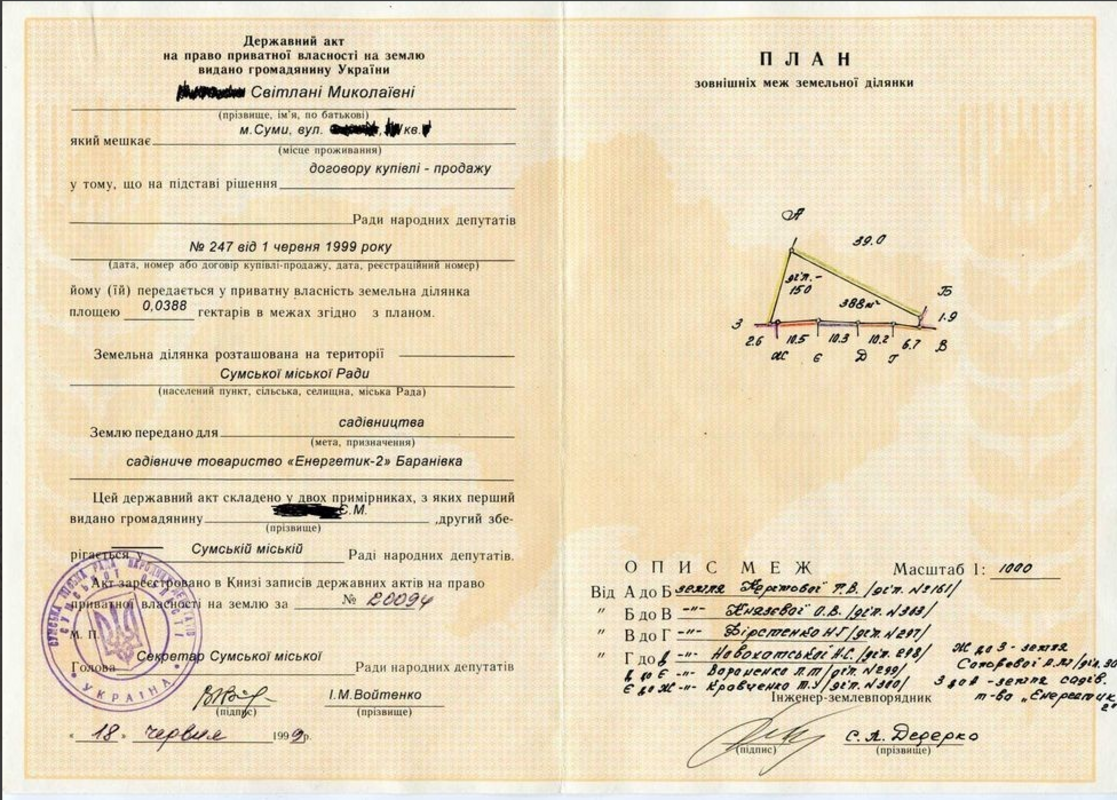 Державний акт
на право приватної власності на землю
видано громадянину України
Світлані Миколаївні
(прізвище, ім'я, по батькові)
м.Суми, вул. кв.
який мешкає
(місце проживання)
договору купівлі - продажу
у тому, що на підставі рішення
Ради народних депутатів
№ 247 від 1 червня 1999 року
(дата, номер або договір купівлі-продажу, дата, реєстраційний номер)
йому (їй) передається у приватну власність земельна ділянка
площею 0,0388 гектарів в межах згідно з планом.
Земельна ділянка розташована на території
Сумської міської Ради
(населений пункт, сільська, селищна, міська Рада)
садівництва
Землю передано для
(мета, призначення)
садівниче товариство «Енергетик-2» Баранівка
Цей державний акт складено у двох примірниках, з яких перший
видано громадянину Є.М. ,другий збе-
(прізвище)
рігається у Сумській міській Раді народних депутатів.
Акт зареєстровано в Книзі записів державних актів на право
приватної власності на землю за № 20094
М. П.
Голова Секретар Сумської міської Ради народних депутатів
І.М.Войтенко
(підпис) (прізвище)
« 18 » червня 1999р.
УКРАЇНА
ПЛАН
зовнішніх меж земельної ділянки
А
39.0
діл.-
150
388м²
Б
1.9
З
2.6 10.5 10.3 10.2 6.7 В
Ж Є Д Г
ОПИС МЕЖ Масштаб 1: 1000
Від А до Б земля /діл. №2161/
" Б до В -"- Князєвої О.В. /діл. №303/
" В до Г -"- Фірстенко Н.Г. /діл. №297/
" Г до Д -"- Новохатської Н.С. /діл. 298/
Д до Є -"- Вороненко П.Т /діл. №299/
Є до Ж -"- Кравченко Т.І /діл. №300/
Ж до З - земля
З до А - земля садів.
т-ва „Енергетик
2"
Інженер-землевпорядник
С.А. Дедерко
(підпис) (прізвище)